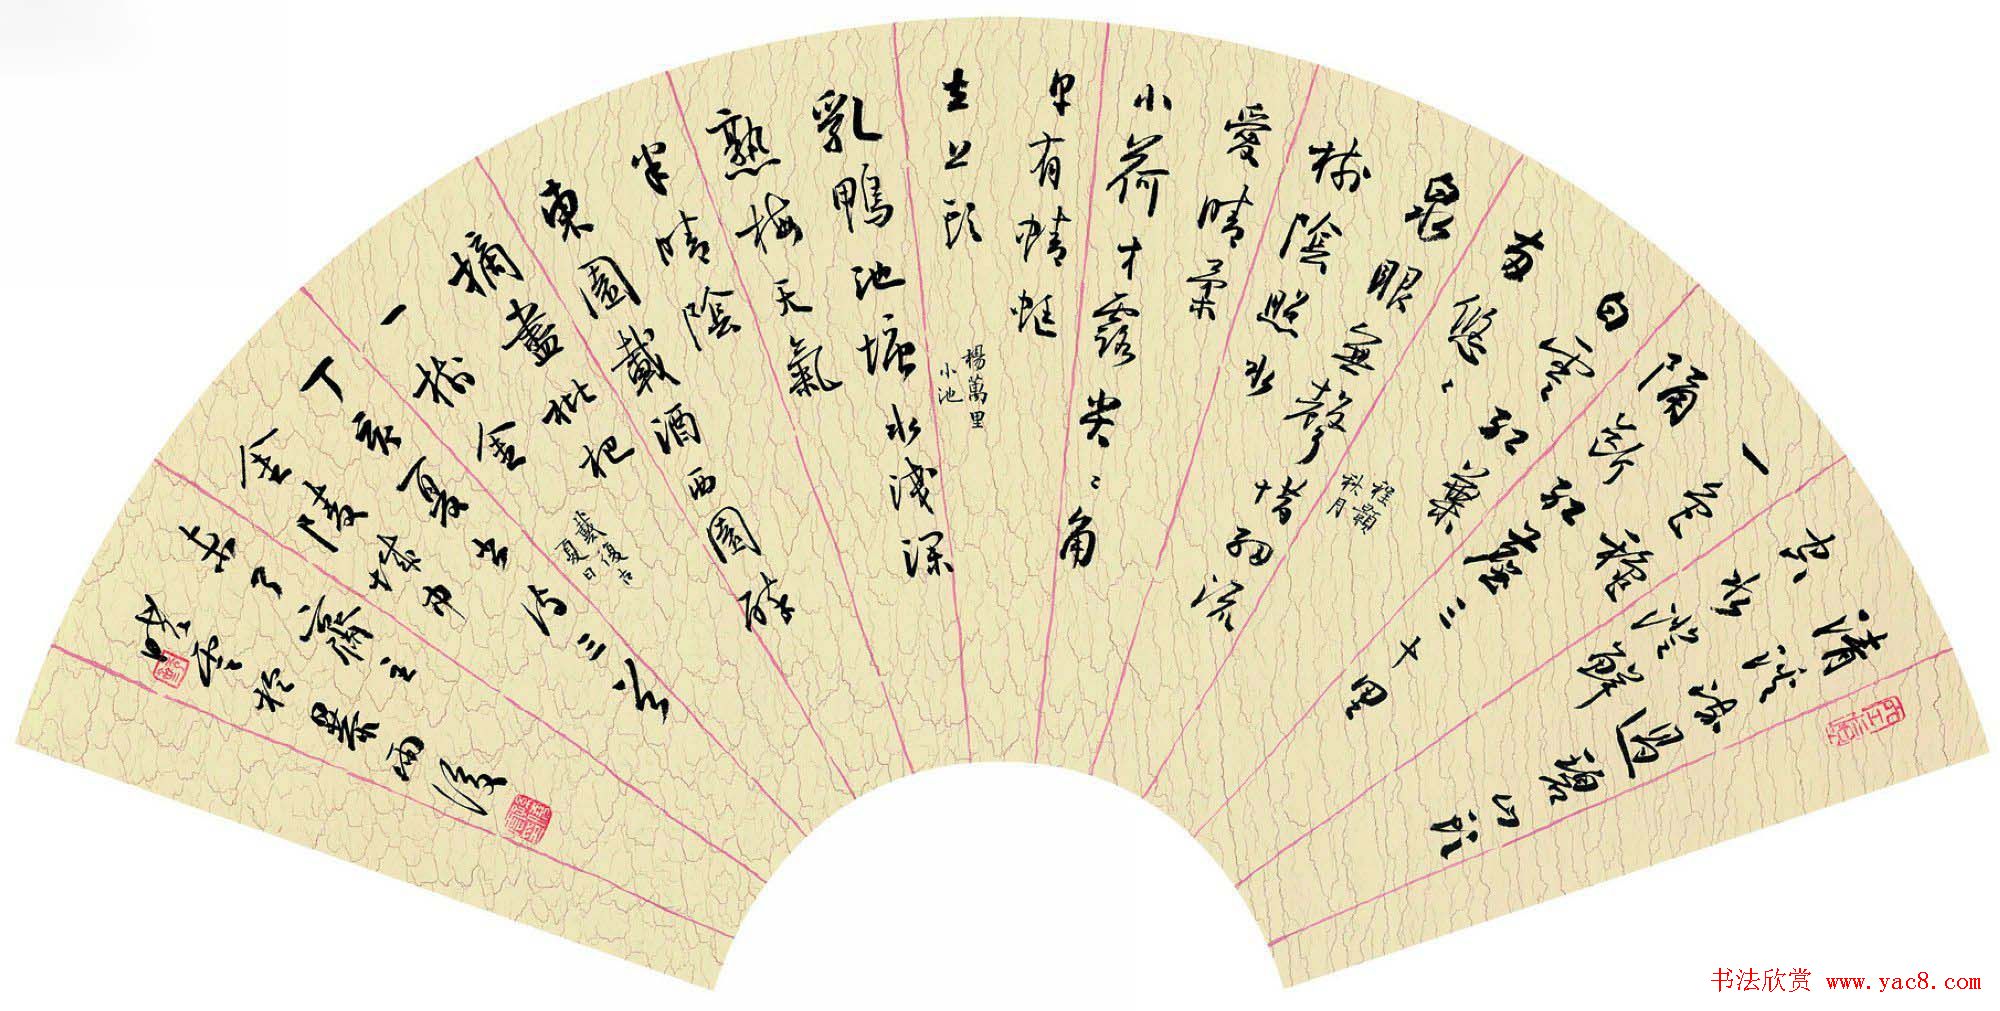 清溪流過碧山頭
空水澄鮮
一色穐
隔斷紅塵三十里
白雲紅葉
兩悠々
程顥
秋月
泉眼無聲惜細流
樹陰照水
愛晴柔
小荷才露尖々角
早有蜻蜓
立上頭
楊萬里
小池
乳鴨池塘水淺深
熟梅天氣
半晴陰
東園載酒西園醉
摘盡枇杷
一樹金
戴復古
夏日
丁亥夏書詩三首
金陵城中
了齋主
於暮雨後
书法欣赏 www.yac8.com